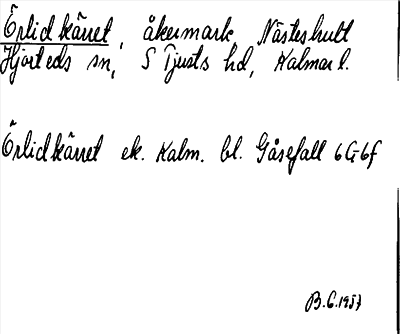 Örlid kärret, åkermark, Nästeshult
Hjorteds sn, S Tjusts hd, Kalmar l.
Örlidkärret ek. Kalm. bl. Gåsefall 6G6f
B.G. 1957